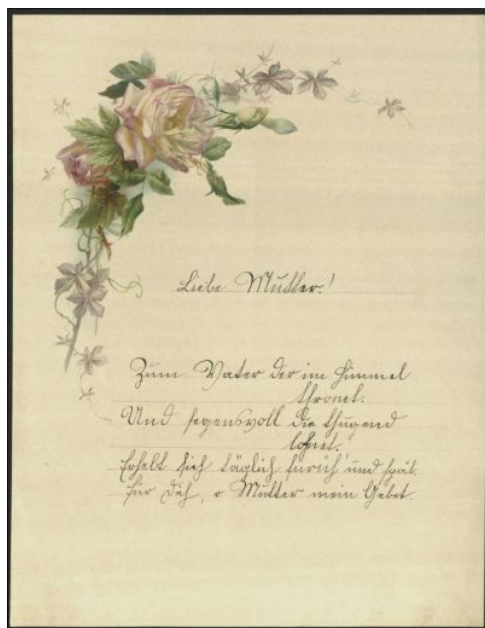 Liebe Mutter!
Zum Vater der im Himmel
thronet.
Und segensvoll die Thugend
lohnet.
Erhebt sich täglich früh und spät
für dich, o Mutter mein Gebet.